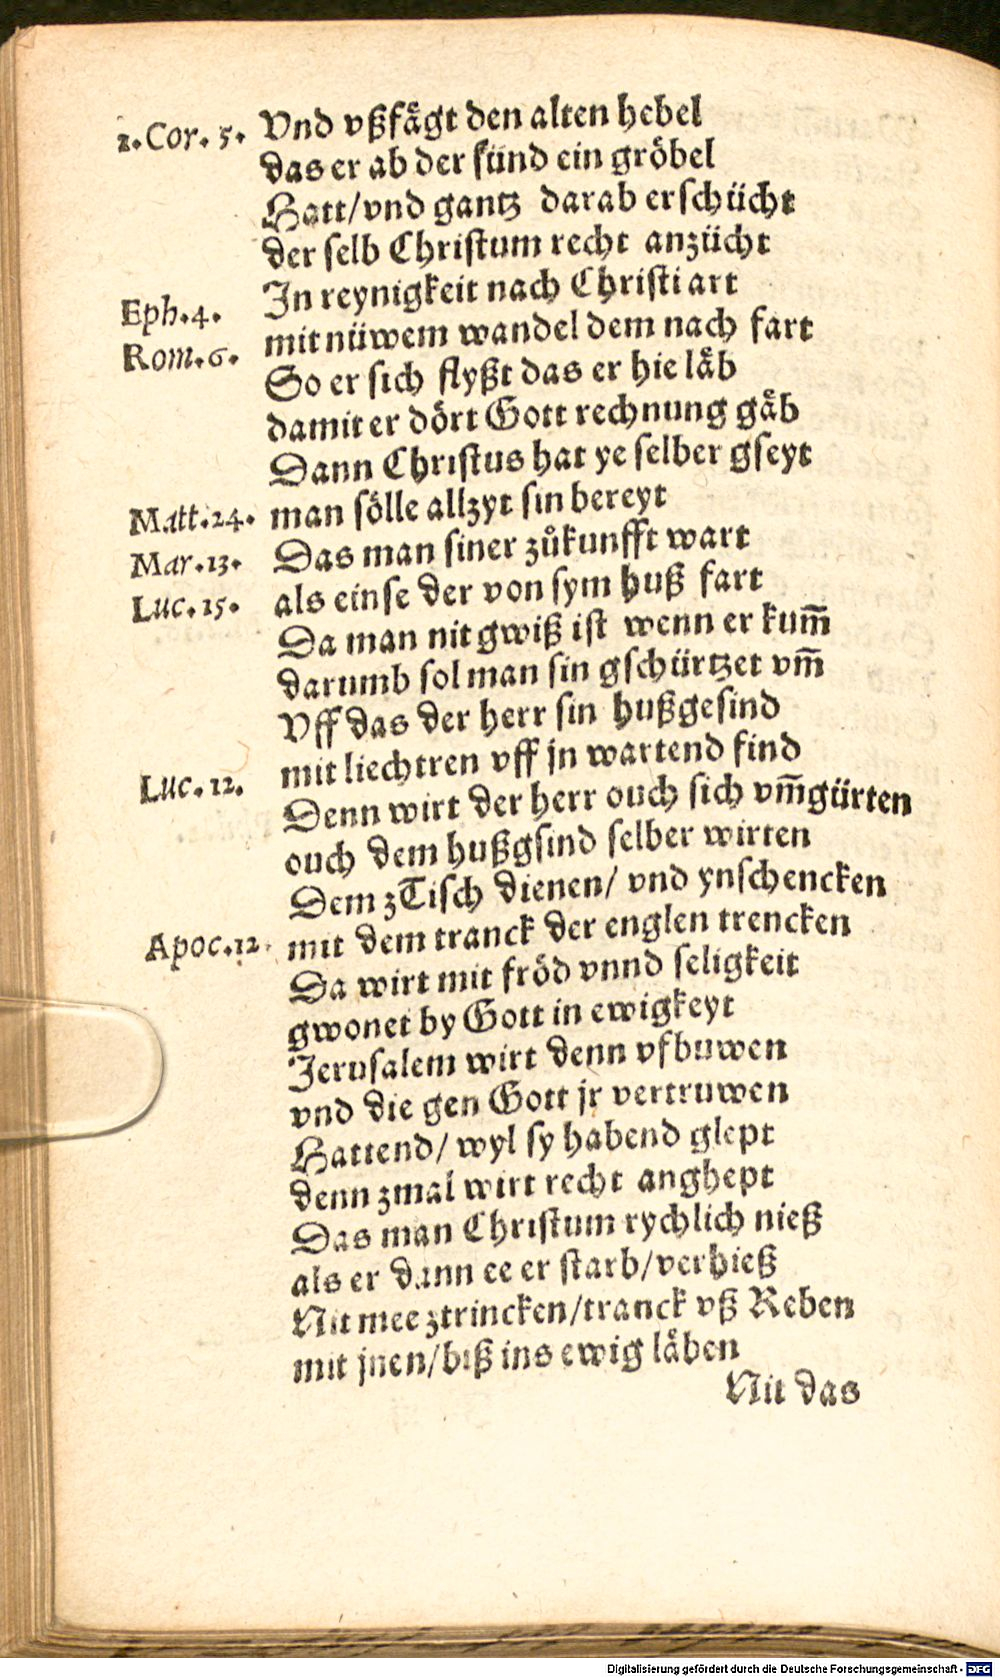 1.Cor.5. Vnd vßfaͤgt den alten hebel
das er ab der sünd ein gröbel
Hatt/vnd gantz darab erschücht
der selb Christum recht anzücht
In reynigkeit nach Christi art
Eph.4. mit nüwem wandel dem nach fart
Rom.6. So er sich flyßt das er hie laͤb
damit er dört Gott rechnung gaͤb
Dann Christus hat ye selber gseyt
Matt.24. man sölle allzyt sin bereyt
Mar.13. Das man siner zuͦkunfft wart
Luc.15. als einse der von sym huß fart
Da man nit gwiß ist wenn er kum̃
darumb sol man sin gschürtzet vm̃
Vff das der herr sin hußgesind
mit liechtren vff jn wartend find
Luc.12. Denn wirt der herr ouch sich vm̃gürten
ouch dem hußgsind selber wirten
Dem zTisch dienen/ vnd ynschencken
Apoc.12. mit dem tranck der englen trencken
Da wirt mit fröd vnnd seligkeit
gwonet by Gott in ewigkeyt
Jerusalem wirt denn vfbuwen
vnd die gen Gott jr vertruwen
Hattend/ wyl sy habend glept
denn zmal wirt recht anghept
Das man Christum rychlich nieß
als er dann ee er starb/verhieß
Nit mee ztrincken/tranck vß Reben
mit jnen/biß ins ewig laͤben
Nit das
Digitalisierung gefördert durch die Deutsche Forschungsgemeinschaft - DFG